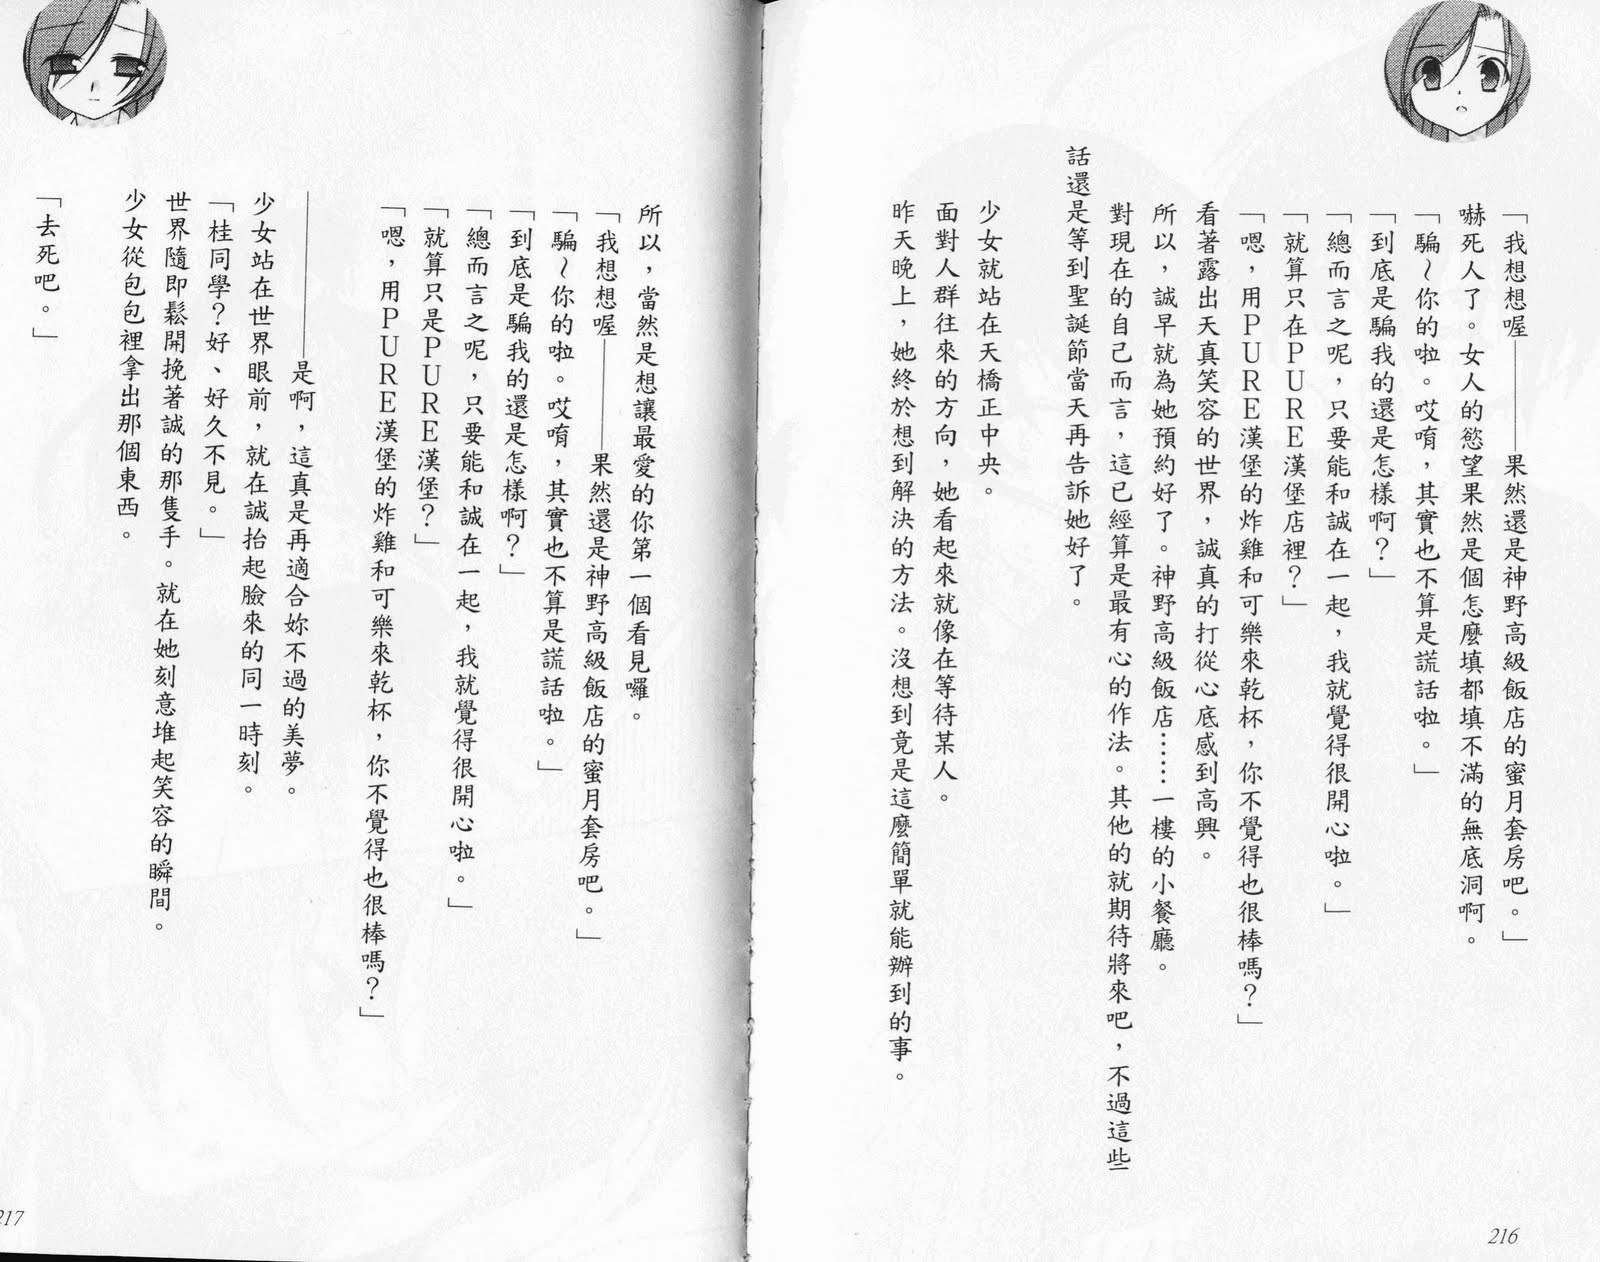 「我想想喔————果然還是神野高級飯店的蜜月套房吧。」
嚇死人了。女人的慾望果然是個怎麼填都填不滿的無底洞啊。
「騙～你的啦。哎唷，其實也不算是謊話啦。」
「到底是騙我的還是怎樣啊？」
「總而言之呢，只要能和誠在一起，我就覺得很開心啦。」
「就算只在PURE漢堡店裡？」
「嗯，用PURE漢堡的炸雞和可樂來乾杯，你不覺得也很棒嗎？」
看著露出天真笑容的世界，誠真的打從心底感到高興。
所以，誠早就為她預約好了。神野高級飯店……一樓的小餐廳。
對現在的自己而言，這已經算是最有心的作法。其他的就期待將來吧，不過這些
話還是等到聖誕節當天再告訴她好了。
少女就站在天橋正中央。
面對人群往來的方向，她看起來就像在等待某人。
昨天晚上，她終於想到解決的方法。沒想到竟是這麼簡單就能辦到的事。
216
所以，當然是想讓最愛的你第一個看見囉。
「我想想喔————果然還是神野高級飯店的蜜月套房吧。」
「騙～你的啦。哎唷，其實也不算是謊話啦。」
「到底是騙我的還是怎樣啊？」
「總而言之呢，只要能和誠在一起，我就覺得很開心啦。」
「就算只是PURE漢堡？」
「嗯，用PURE漢堡的炸雞和可樂來乾杯，你不覺得也很棒嗎？」
————是啊，這真是再適合妳不過的美夢。
少女站在世界眼前，就在誠抬起臉來的同一時刻。
「桂同學？好、好久不見。」
世界隨即鬆開挽著誠的那隻手。就在她刻意堆起笑容的瞬間。
少女從包包裡拿出那個東西。
「去死吧。」
217